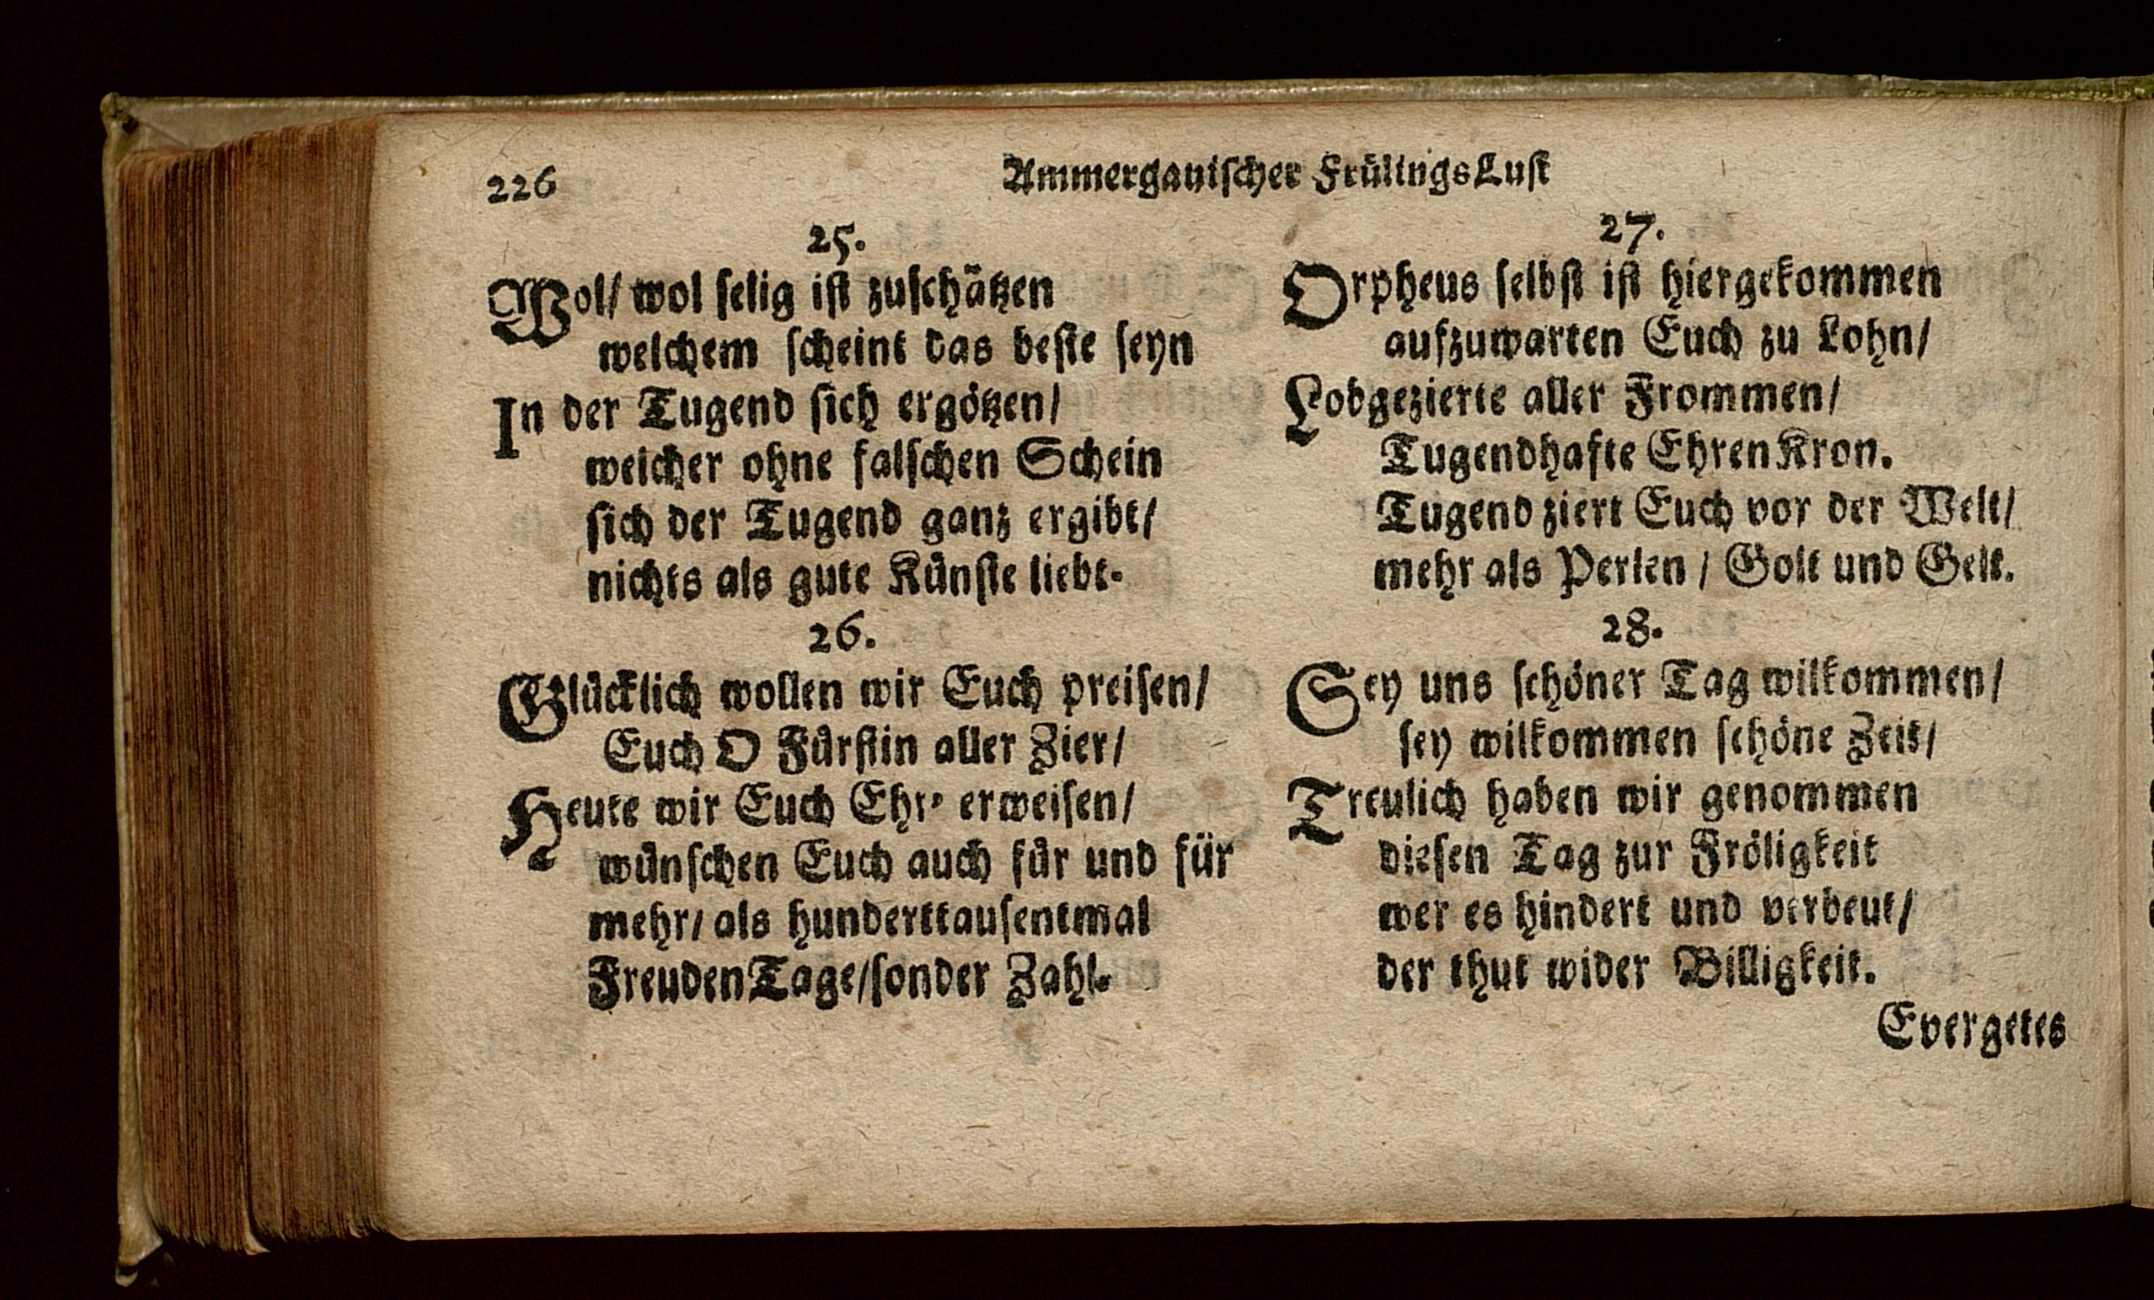 226
Ammergauischer FrülingsLust
25.
Wol/ wol selig ist zuschätzen
welchem scheint das beste seyn
In der Tugend sich ergötzen/
welcher ohne falschen Schein
sich der Tugend ganz ergibt/
nichts als gute Künste liebt.
26.
Glücklich wollen wir Euch preisen/
Euch O Fürstin aller Zier/
Heute wir Euch Ehr' erweisen/
wünschen Euch auch für und für
mehr/ als hunderttausentmal
FreudenTage/sonder Zahl.
27.
Orpheus selbst ist hiergekommen
aufzuwarten Euch zu Lohn/
Lobgezierte aller Frommen/
Tugendhafte EhrenKron.
Tugend ziert Euch vor der Welt/
mehr als Perlen / Golt und Gelt.
28.
Sey uns schöner Tag wilkommen/
sey wilkommen schöne Zeit/
Treulich haben wir genommen
diesen Tag zur Fröligkeit
wer es hindert und verbeut/
der thut wider Billigkeit.
Evergetes